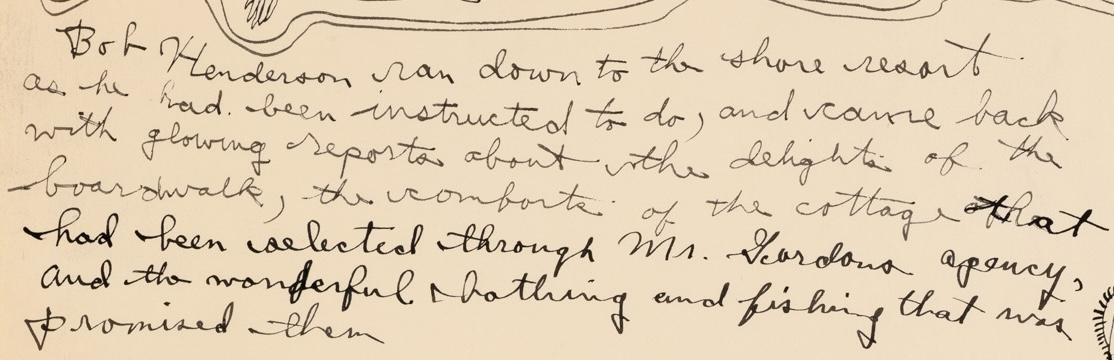 Bob Henderson ran down to the shore resort
as he had been instructed to do, and came back
with glowing reports about the delights of the
boardwalk, the comforts of the cottage that
had been selected through Mr. Gordons agency,
and the wonderful bathing and fishing that was
promised them